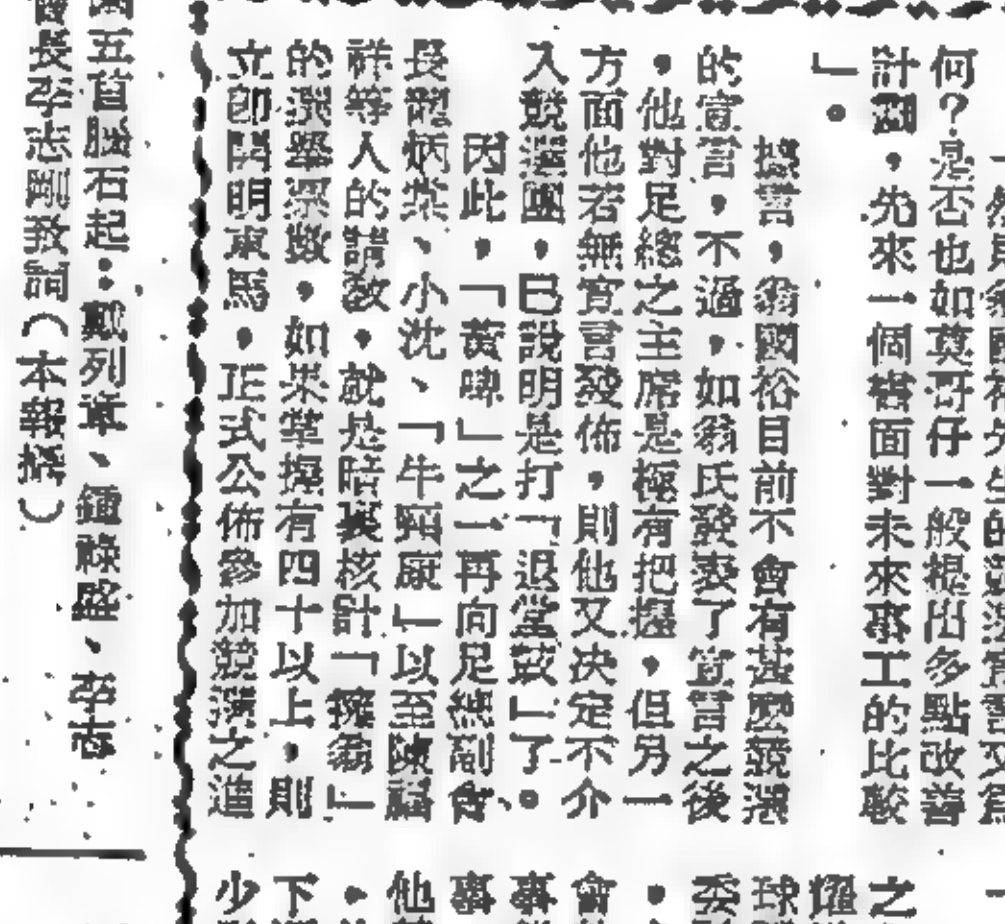 何？是否也如莫哥仔一般提出多點改善
計劃，先來一個書面對未來事工的比較
」。
據書，翁國裕目前不會有甚麽競選
的宣言，不過，如翁氏發表了宣言之後
，他對足總之主席是極有把握，但另一
方面他若無宣言發佈，則他又决定不介
入競選團，已說明是打「退堂鼓」了。
因此，「黃啤」之一再向足總副會
長 炳棠、小沈、「牛 康」以至陳福
祥等人的請敎，就是暗裏核計「擁翁」
的選舉票數，如果掌握有四十以上，則
立卽開明車馬，正式公佈參加競選之這
五首騰石起：戴列章、鍾祿盛、 志
長李志剛致詞（本報攝）
之
球
委
，
會
事
事
他
，
下
少